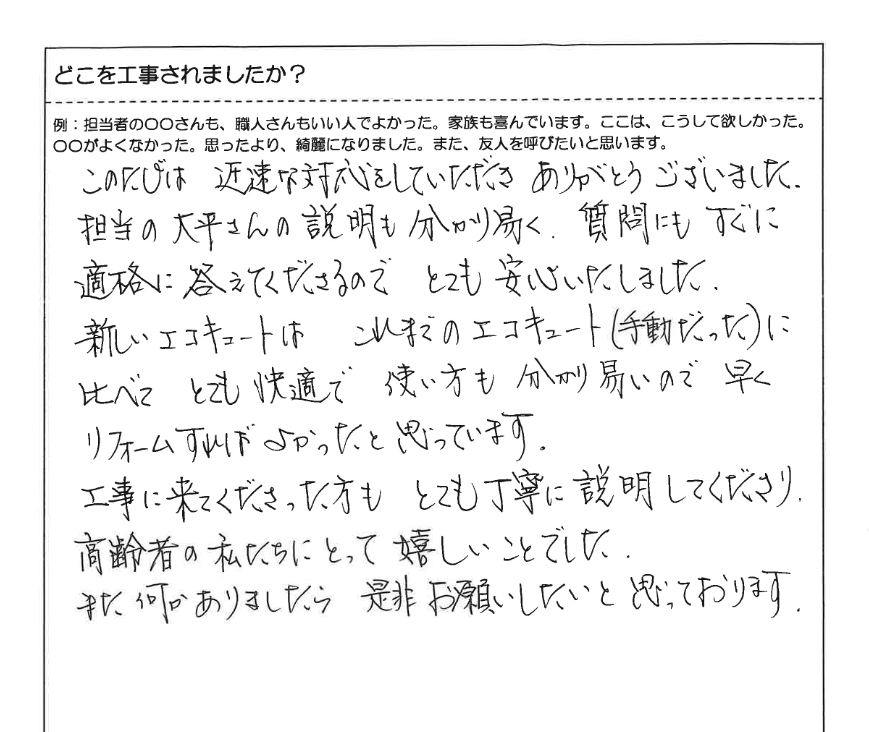 どこを工事されましたか？
例：担当者の〇〇さんも、職人さんもいい人でよかった。家族も喜んでいます。ここは、こうして欲しかった。
〇〇がよくなかった。思ったより、綺麗になりました。また、友人を呼びたいと思います。
このたびは 迅速な対応をしていただき ありがとうございました.
担当の大平さんの説明も分かり易く. 質問にも すぐに
適格に答えてくださるので とても 安心いたしました.
新しいエコキュートは これまでのエコキュート(手動だった)に
比べて とても快適で 使い方も 分かり易いので 早く
リフォームすればよかったと思っています.
工事に来てくださった方も とても丁寧に説明してくださり.
高齢者の私たちにとって嬉しいことでした.
また何かありましたら 是非お願いしたいと思っております.